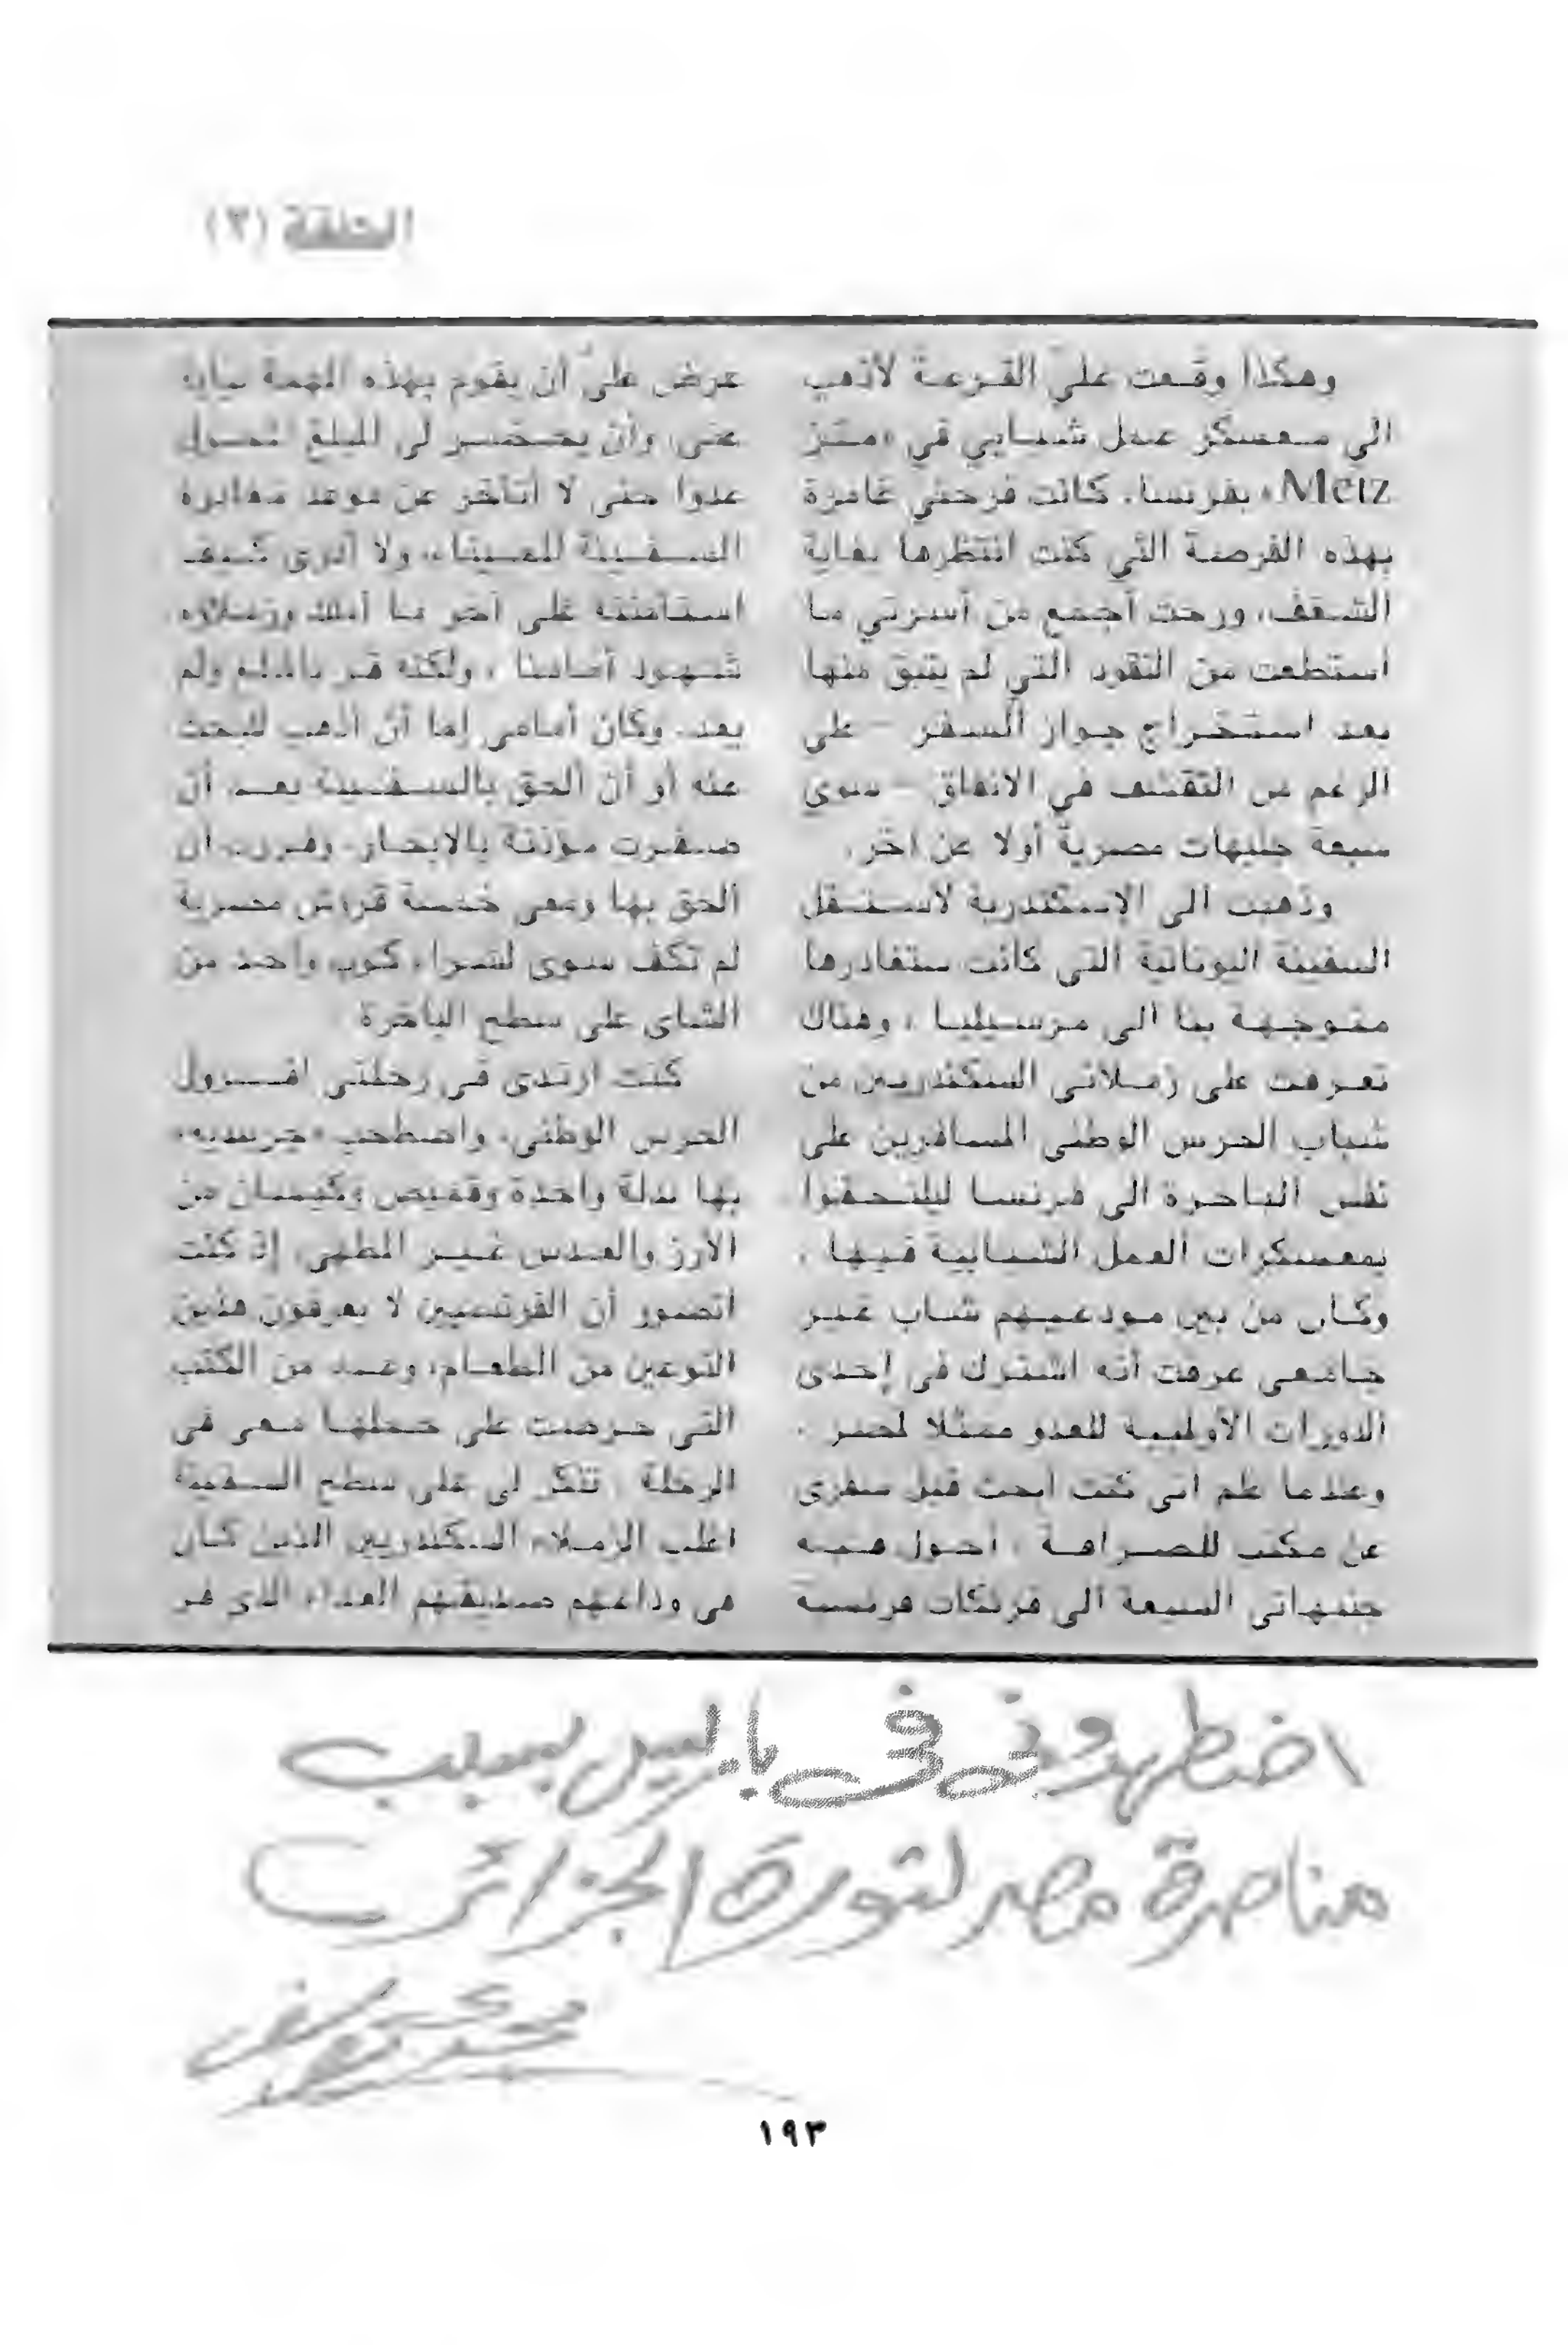 الحلقة (٣)
وهكذا وقعت عليّ القرعة لأذهب
الى معسكر عمل شبابي في «متز
Metz» بفرنسا. كانت فرحتي غامرة
بهذه الفرصة التي كنت انتظرها بغاية
الشغف، ورحت أجمع من أسرتي ما
استطعت من النقود التي لم يتبق منها
بعد استخراج جواز السفر - على
الرغم من التقشف في الانفاق - سوي
سبعة جنيهات مصرية أولا عن اخر.
وذهبت الى الإسكندرية لاستقل
السفينة اليونانية التي كانت ستغادرها
متوجهة بنا الى مرسيليا ، وهناك
تعرفت على زملائى السكندريين من
شباب الحرس الوطنى المسافرين على
نفس الباخرة الى فرنسا ليلتحقوا
بمعسكرات العمل الشبابية فيها .
وكان من بين مودعيهم شاب غير
جامعى عرفت أنه اشترك فى إحدى
الدورات الأولمبية للعدو ممثلا لمصر .
وعندما علم انى كنت ابحث قبل سفرى
عن مكتب للصرافة ، احول فيه
جنيهاتى السبعة الى فرنكات فرنسية
عرض عليّ أن يقوم بهذه المهمة نيابة
عنى، وأن يحضر لى المبلغ المحول
عدوا حتى لا أتأخر عن موعد مغادرة
السفينة للميناء، ولا أدرى كيف
استأمنته على آخر ما أملك وزملاؤه
شهود أمامنا ، ولكنه فر بالمبلغ ولم
يعد. وكان أمامى إما أن أذهب للبحث
عنه أو أن ألحق بالسفينة بعد أن
صفرت مؤذنة بالابحار. وقررت أن
الحق بها ومعى خمسة قروش مصرية
لم تكف سوى لشراء كوب واحد من
الشاى على سطح الباخرة
كنت ارتدى فى رحلتى افرول
الحرس الوطنى، واصطحب «جربندية»
بها بدلة واحدة وقميص وكيسان من
الأرز والعدس غير المطهى، إذ كنت
اتصور أن الفرنسيين لا يعرفون هذين
النوعين من الطعام، وعدد من الكتب
التى حرصت على حملها معى فى
الرحلة . تنكر لى على سطح السفينة
اغلب الزملاء السكندريين الذين كان
فى وداعهم صديقهم العداء الذى فر
اضطهدونى فى باريس بسبب
مناصرة مصر لثورة الجزائر
١٩٣